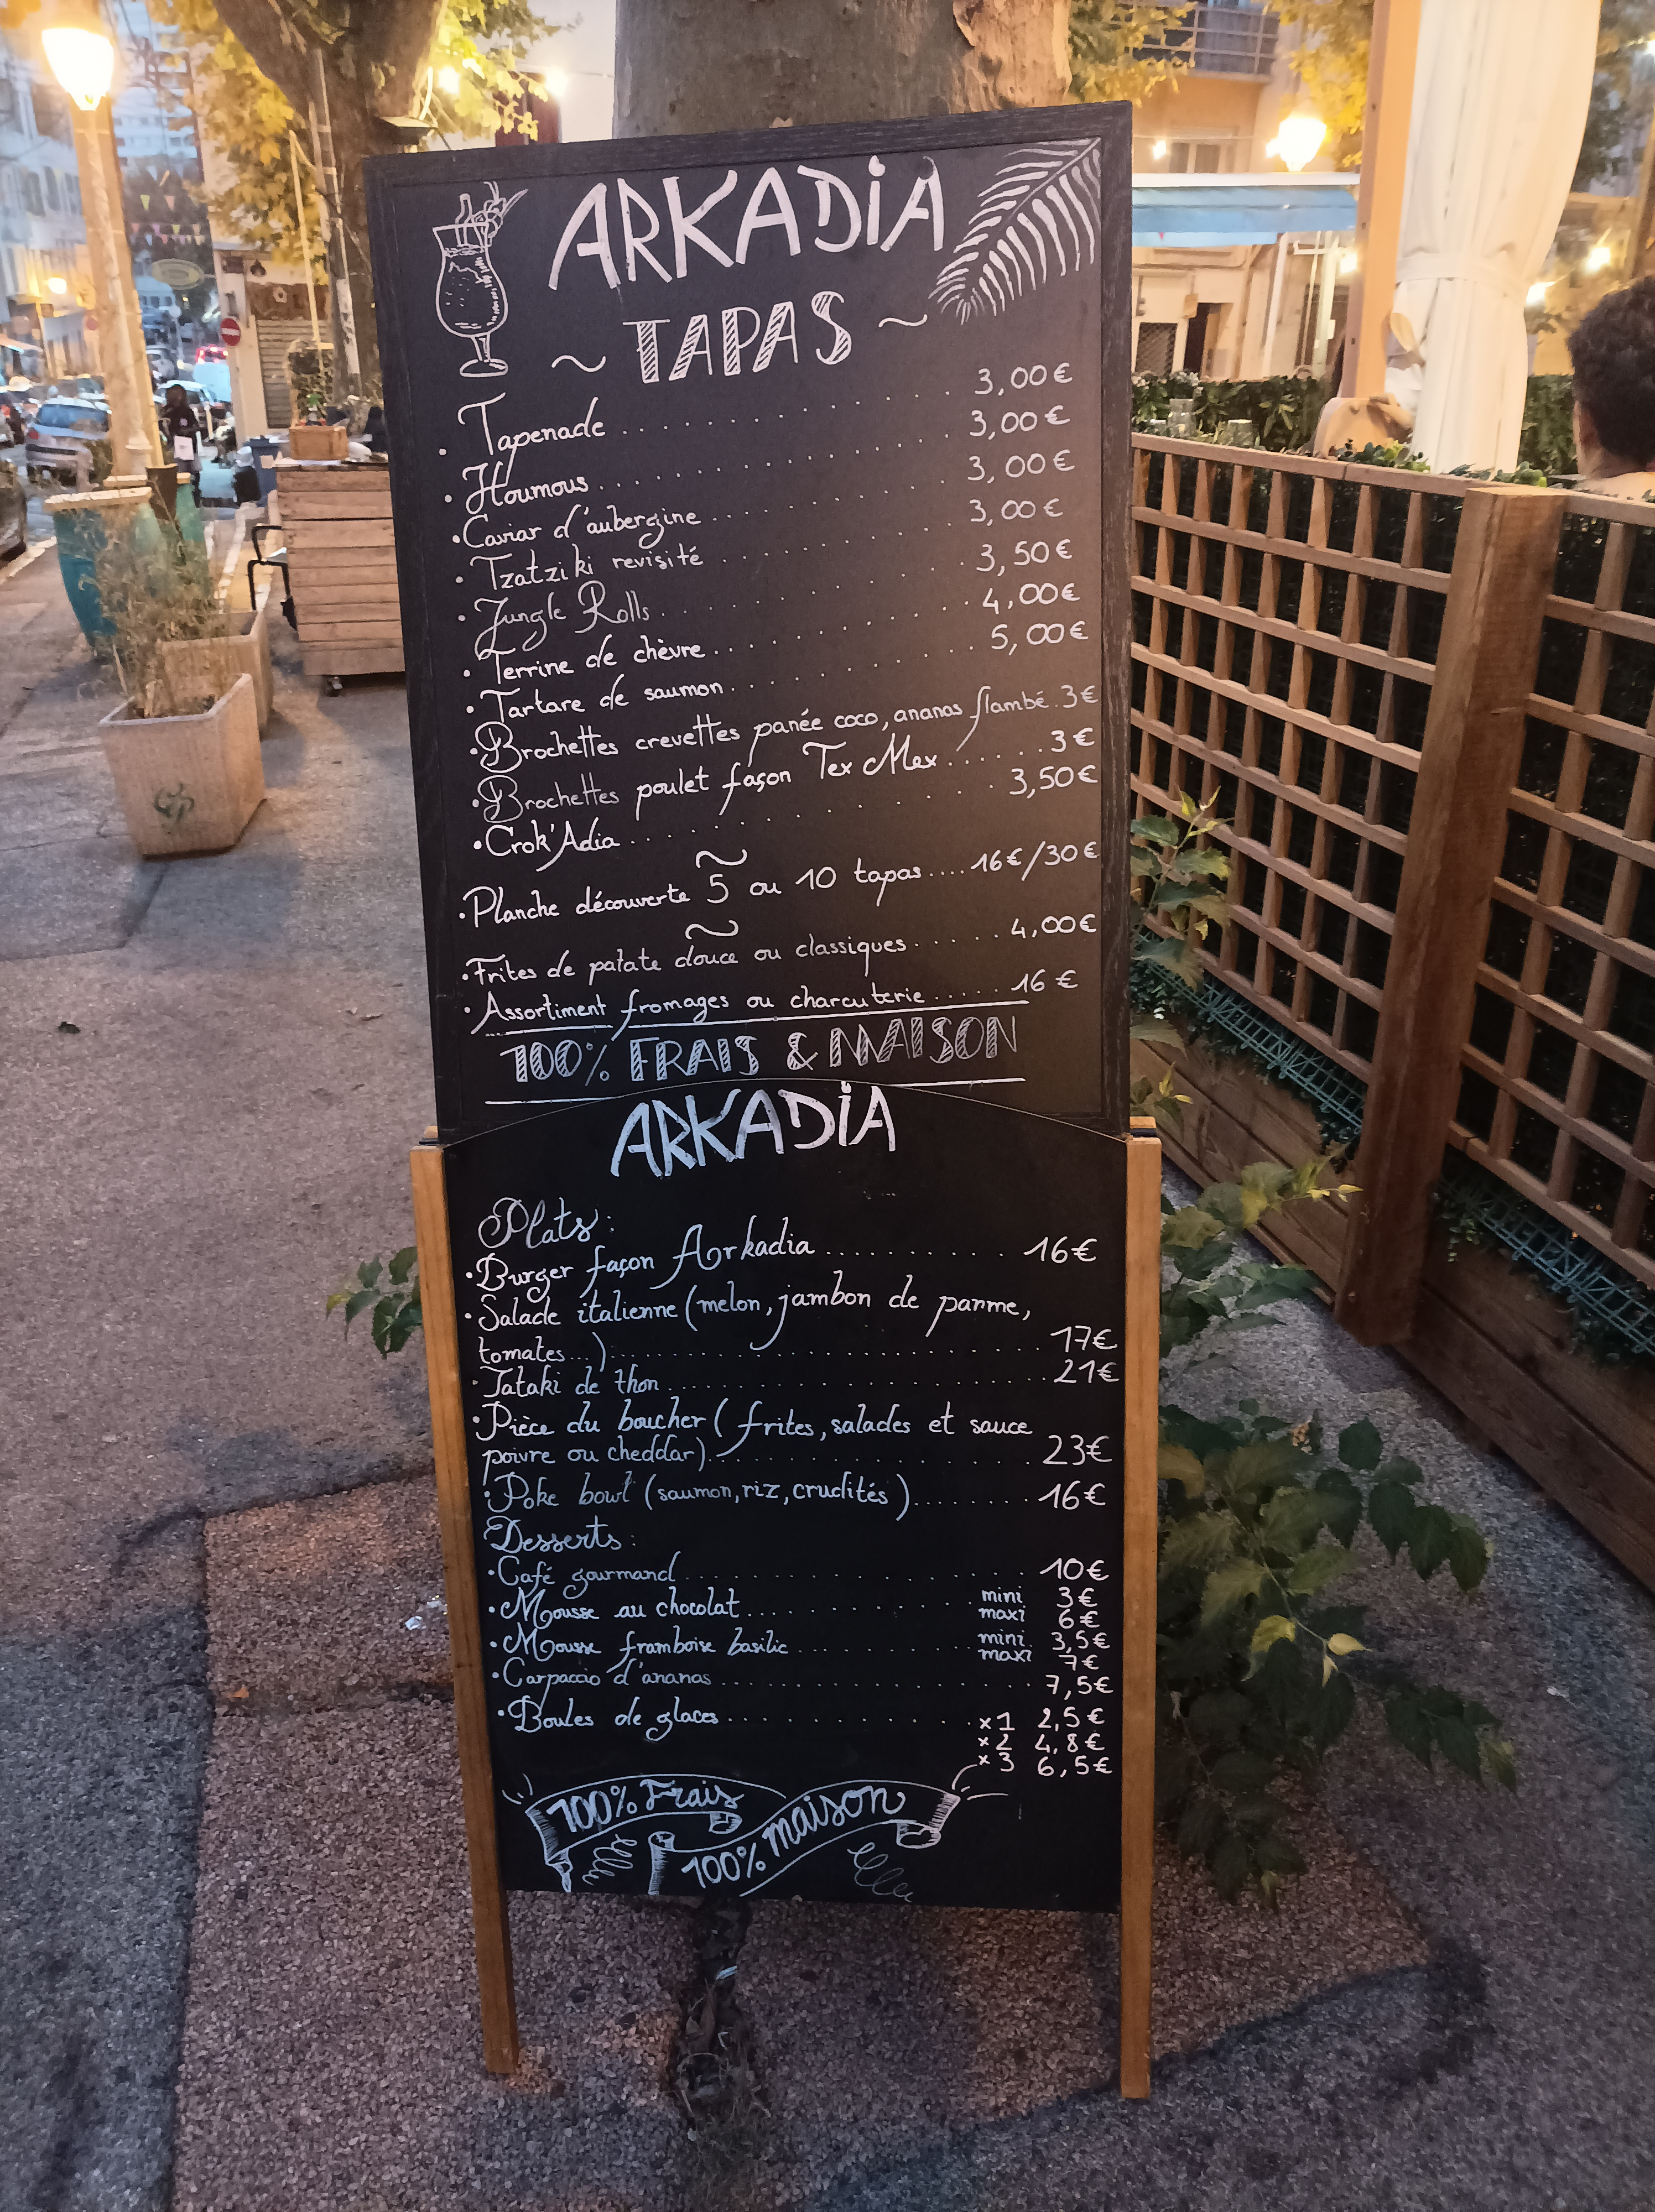 ARKADIA
~ TAPAS ~
• Tapenade . . . . . . . . . . 3,00€
• Houmous . . . . . . . . . . 3,00€
• Caviar d'aubergine . . . . . . . . . . 3,00€
• Tzatziki revisité . . . . . . . . . . 3,00€
• Jungle Rolls . . . . . . . . . . 3,50€
• Terrine de chèvre . . . . . . . . . . 4,00€
• Tartare de saumon . . . . . . . . . . 5,00€
• Brochettes crevettes panée coco, ananas flambé . 3€
• Brochettes poulet façon Tex Mex . . . . . . . 3€
• Crok'Adia . . . . . . . . . . 3,50€
~
• Planche découverte 5 ou 10 tapas .... 16€/30€
~
• Frites de patate douce ou classiques . . . . . 4,00€
• Assortiment fromages ou charcuterie . . . . . 16 €
100% FRAIS & MAISON
ARKADIA
Plats :
• Burger façon Arkadia . . . . . . . . . . 16€
• Salade italienne (melon, jambon de parme,
tomates ...) . . . . . . . . . . 17€
• Tataki de thon . . . . . . . . . . 21€
• Pièce du boucher ( frites, salades et sauce
poivre ou cheddar) . . . . . . . . . . 23€
• Poke bowl (saumon, riz, crudités ) . . . . . . . . 16€
Desserts :
• Café gourmand . . . . . . . . . . 10€
• Mousse au chocolat . . . . . . . . . . mini 3€
maxi 6€
• Mousse framboise basilic . . . . . . . . . . mini 3,5€
maxi 7€
• Carpaccio d'ananas . . . . . . . . . . 7,5€
• Boules de glaces . . . . . . . . . . x1 2,5€
x2 4,8€
x3 6,5€
100% Frais
100% maison